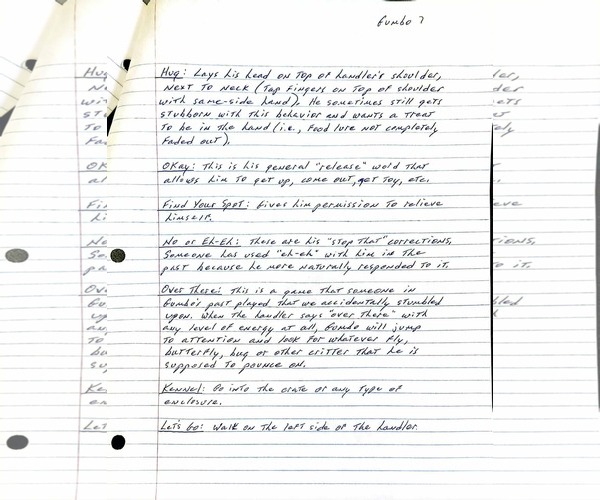 Gumbo 7
Hug: Lays his head on top of handler's shoulder,
next to neck (tap fingers on top of shoulder
with same-side hand). He sometimes still gets
stubborn with this behavior and wants a treat
to be in the hand (i.e., food lure not completely
faded out).
Okay: This is his general "release" word that
allows him to get up, come out, get toy, etc.
Find Your Spot: Gives him permission to relieve
himself.
No or Eh-Eh: These are his "stop that" corrections.
Someone has used "eh-eh" with him in the
past because he more naturally responded to it.
Over There: This is a game that someone in
Gumbo's past played that we accidentally stumbled
upon. When the handler says "over there" with
any level of energy at all, Gumbo will jump
to attention and look for whatever fly,
butterfly, bug or other critter that he is
supposed to pounce on.
Kennel: Go into the crate or any type of
enclosure.
Let's Go: Walk on the left side of the handler.